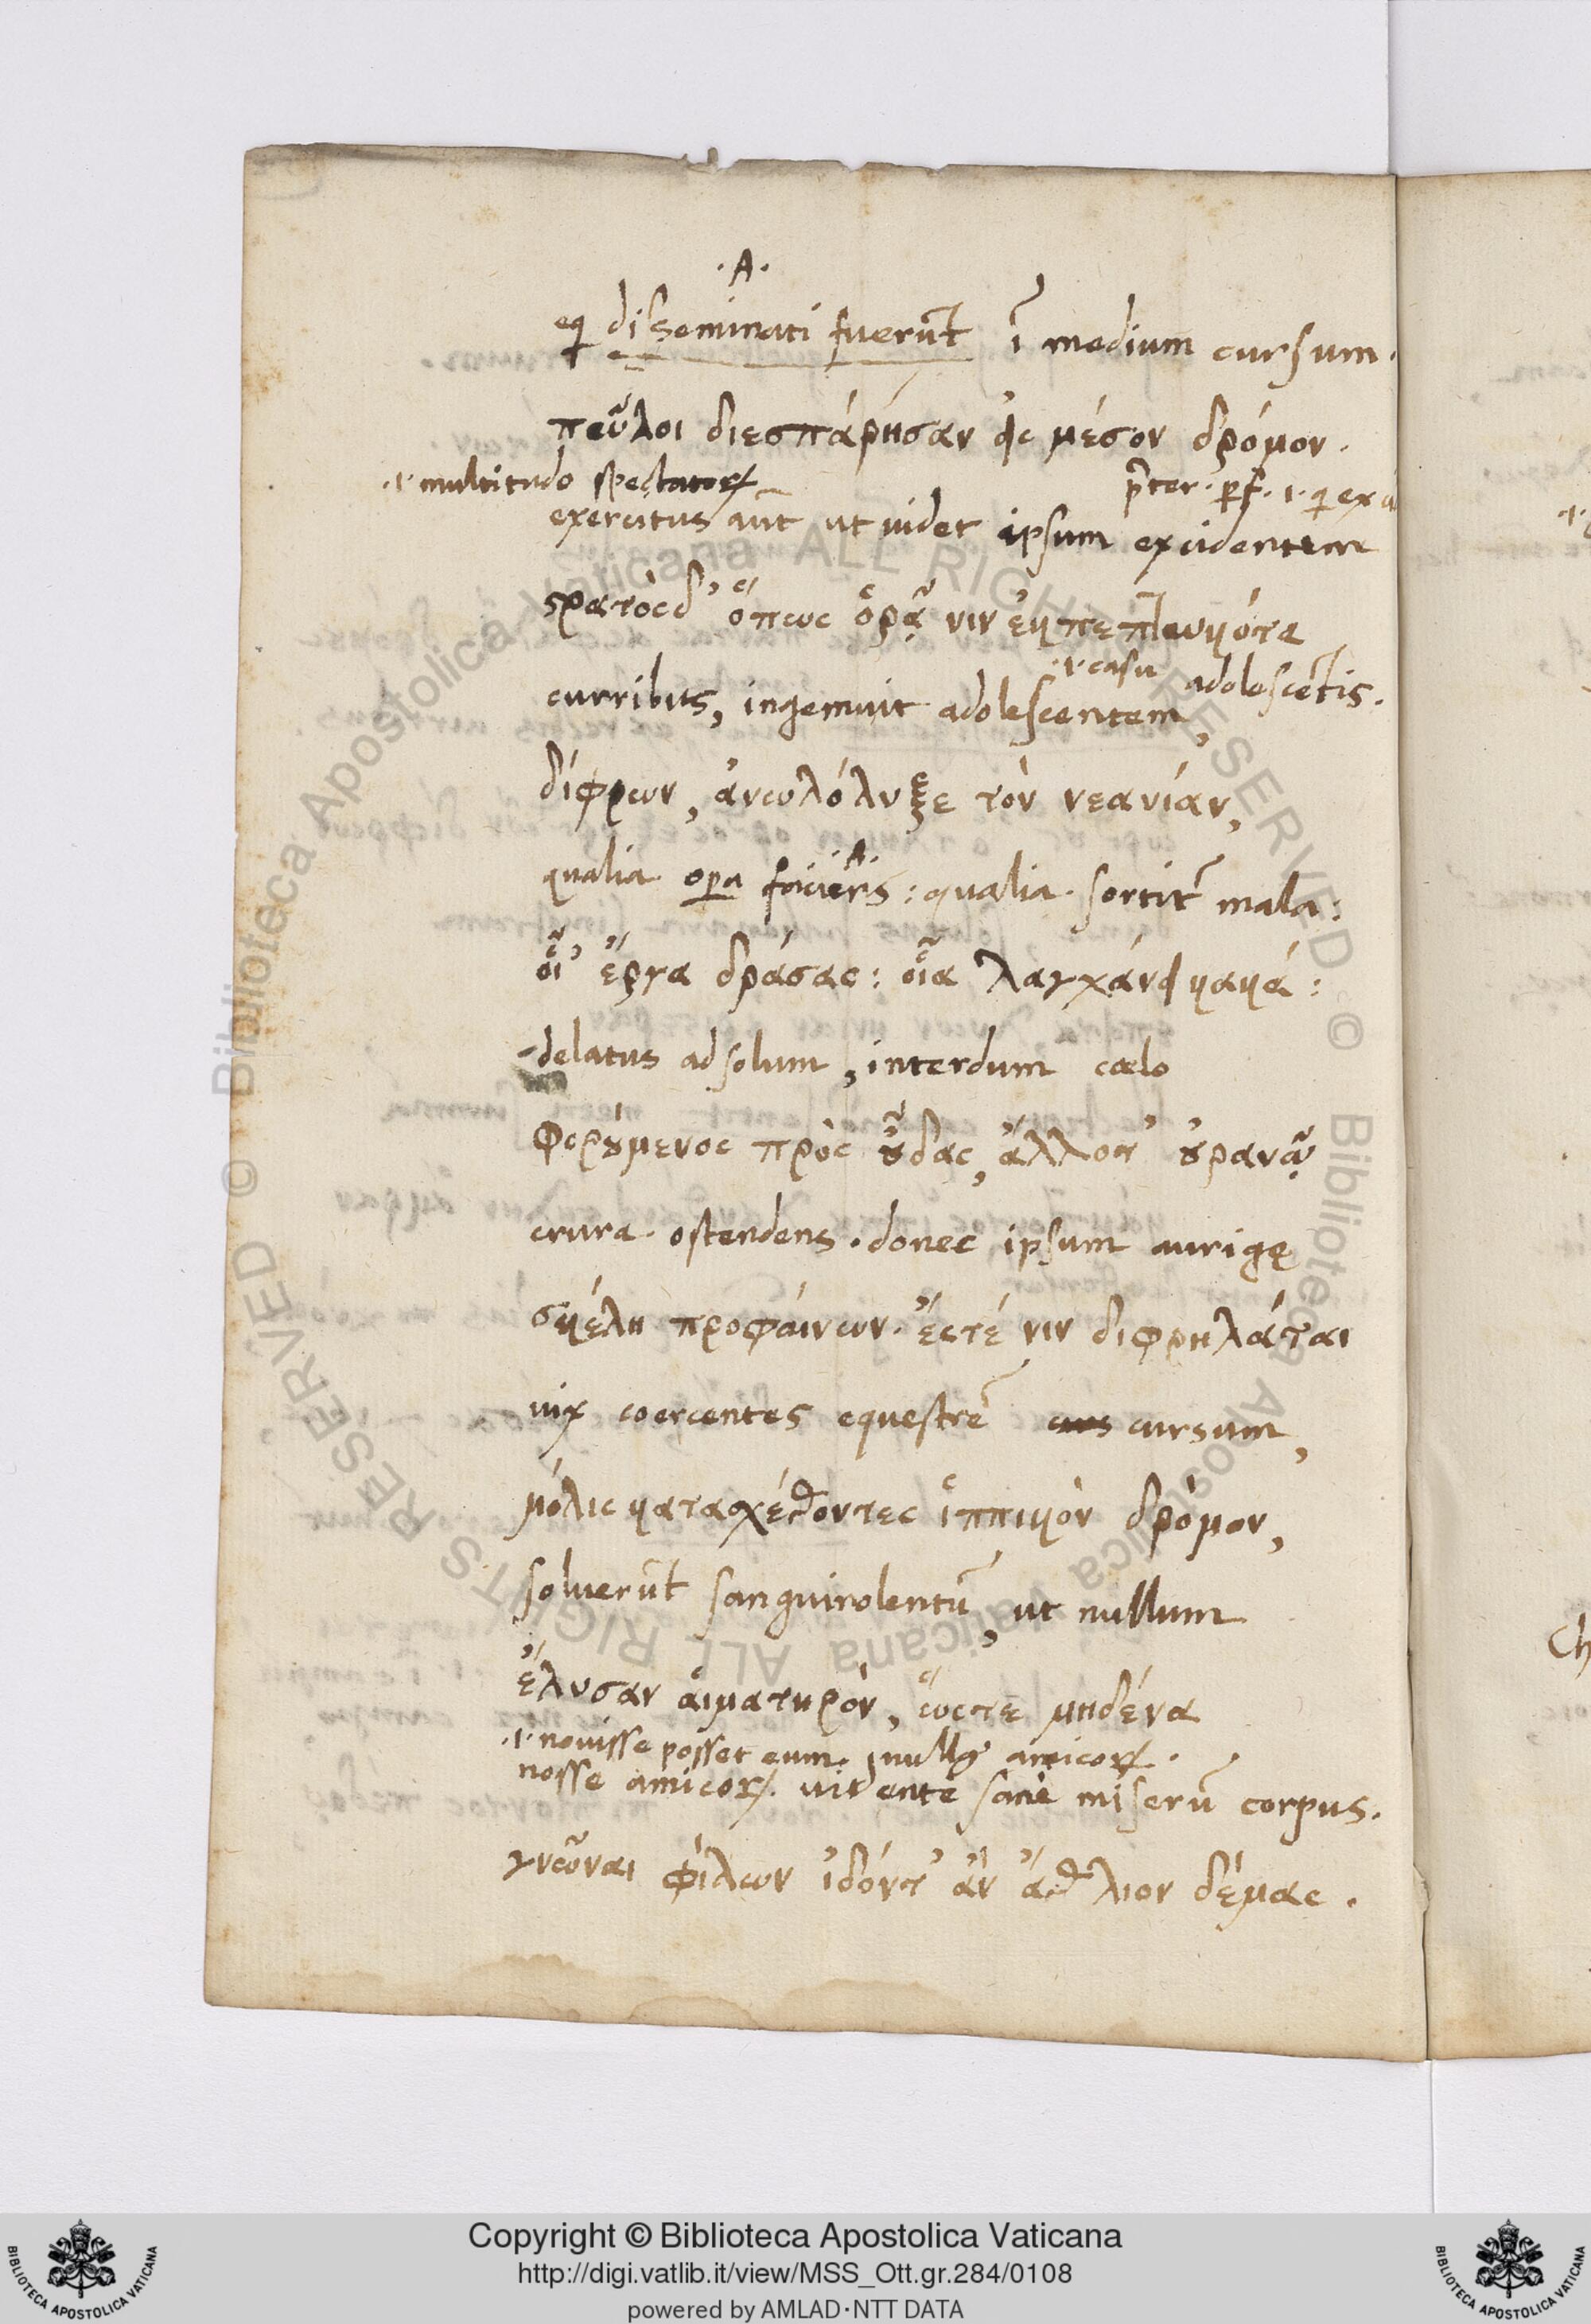 .A.
eqi disseminati fuerũt ĩ medium cursum.
πῶλοι διεσπάρησαν εἰς μέσον δρόμον.
.i. multitudo spectatoꝝ p̃ter. perf. .i. qi ex
exercitus aũt ut uidet ipsum excidentem
στρατὸς δ' ὅπως ὁρᾷ νιν ἐκπεπτωκότα
.i. casu adolescẽtis.
curribus, ingemuit adolescentem,
δίφρων, ἀνωλόλυξε τὸν νεανίαν,
.A.
qualia opa facieris: qualia sortit̃ mala:
οἷ' ἔργα δράσας: οἷα λαγχάνει κακά:
delatus ad solum, interdum cælo
Φορούμενος πρὸς οὖδας, ἄλλοτ' οὐρανῷ
crura ostendens. donec ipsum aurigę
σκέλη προφαίνων. ἔς τέ νιν διφρηλάται
uix coercentes equestrẽ curs cursum,
μόλις κατασχέθοντες ἱππικὸν δρόμον,
soluerũt sanguinolentũ, ut nullum
ἔλυσαν αἱματηρὸν, ὥστε μηδένα
.i. nouisse posset eum. nullus amicoꝝ.
nosse amicoꝝ. uidentẽ sane miserũ corpus.
γνῶναι φίλων ἰδόντ' ἂν ἄθλιον δέμας.
Ch
Copyright © Biblioteca Apostolica Vaticana
http://digi.vatlib.it/view/MSS_Ott.gr.284/0108
powered by AMLAD·NTT DATA
BIBLIOTECA APOSTOLICA VATICANA
BIBLIOTECA APOSTOLICA VATICANA
© Biblioteca Apostolica Vaticana ALL RIGHTS RESERVED
© Biblioteca Apostolica Vaticana ALL RIGHTS RESERVED